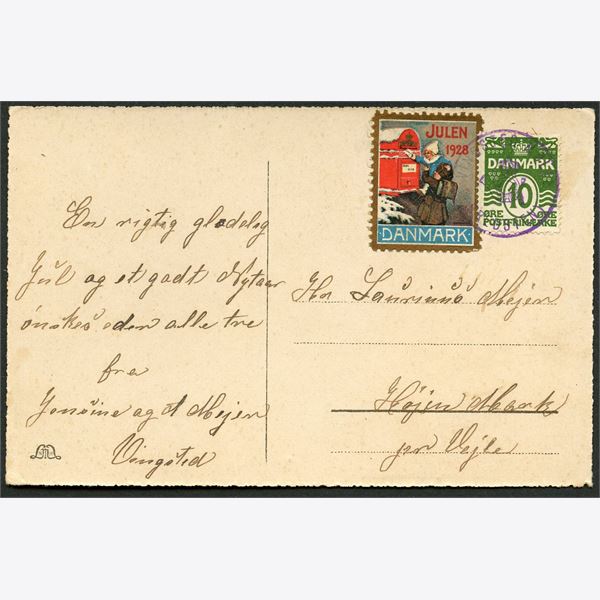 En rigtig gladelig
Jul og et godt Nytaar
ønskes eder alle tre
fra
Jensine og A Mejer
Vingsted
JULEN
1928
DANMARK
DANMARK
10
ØRE ØRE
POSTFRIMÆRKE
Hr Laurinus Mejer
Højen Mark
pr Vejle